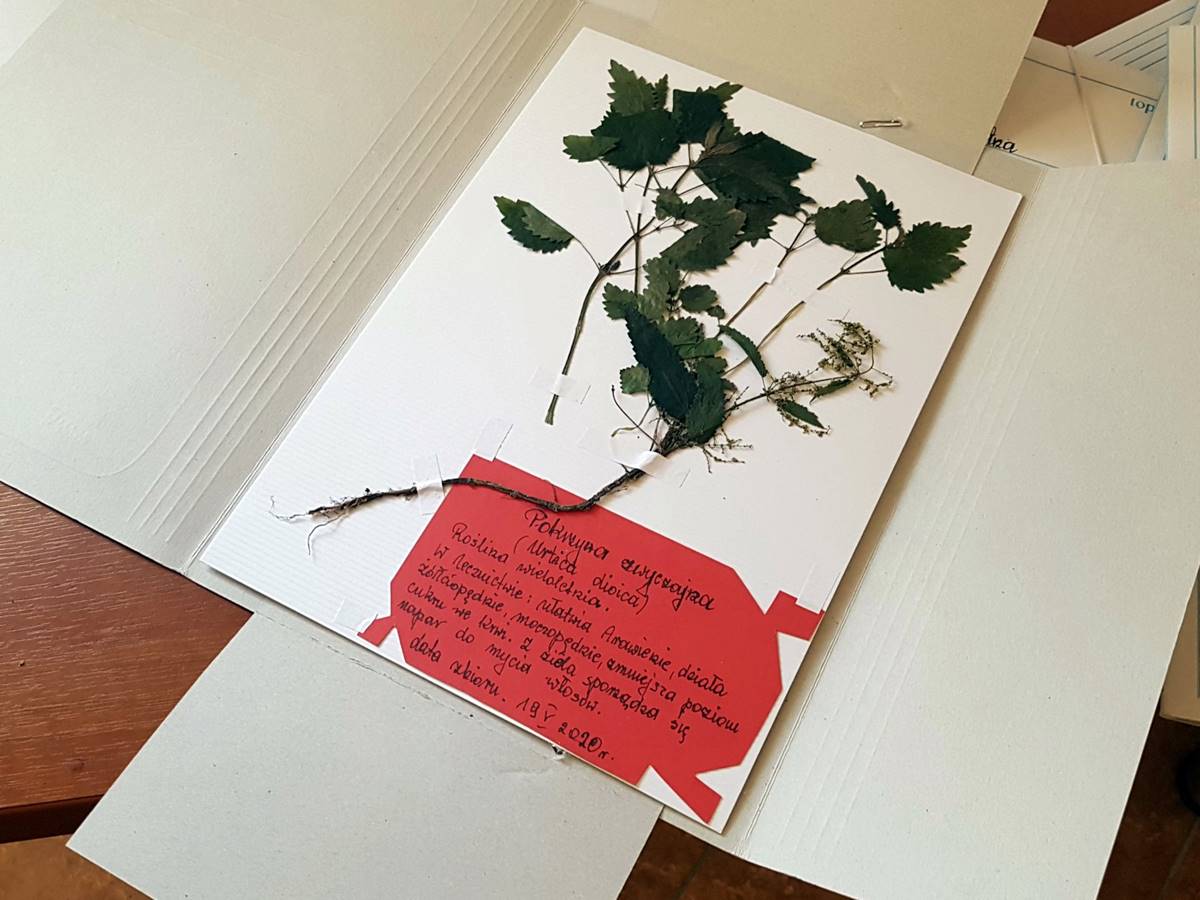 top
Pokrzywa zwyczajna
(Urtica dioica)
Roślina wieloletnia.
W lecznictwie: ułatwia trawienie, działa
żółciopędnie, moczopędnie, zmniejsza poziom
cukru we krwi. Z ziela sporządza się
napar do mycia włosów.
data zbioru. 19 V 2020r.